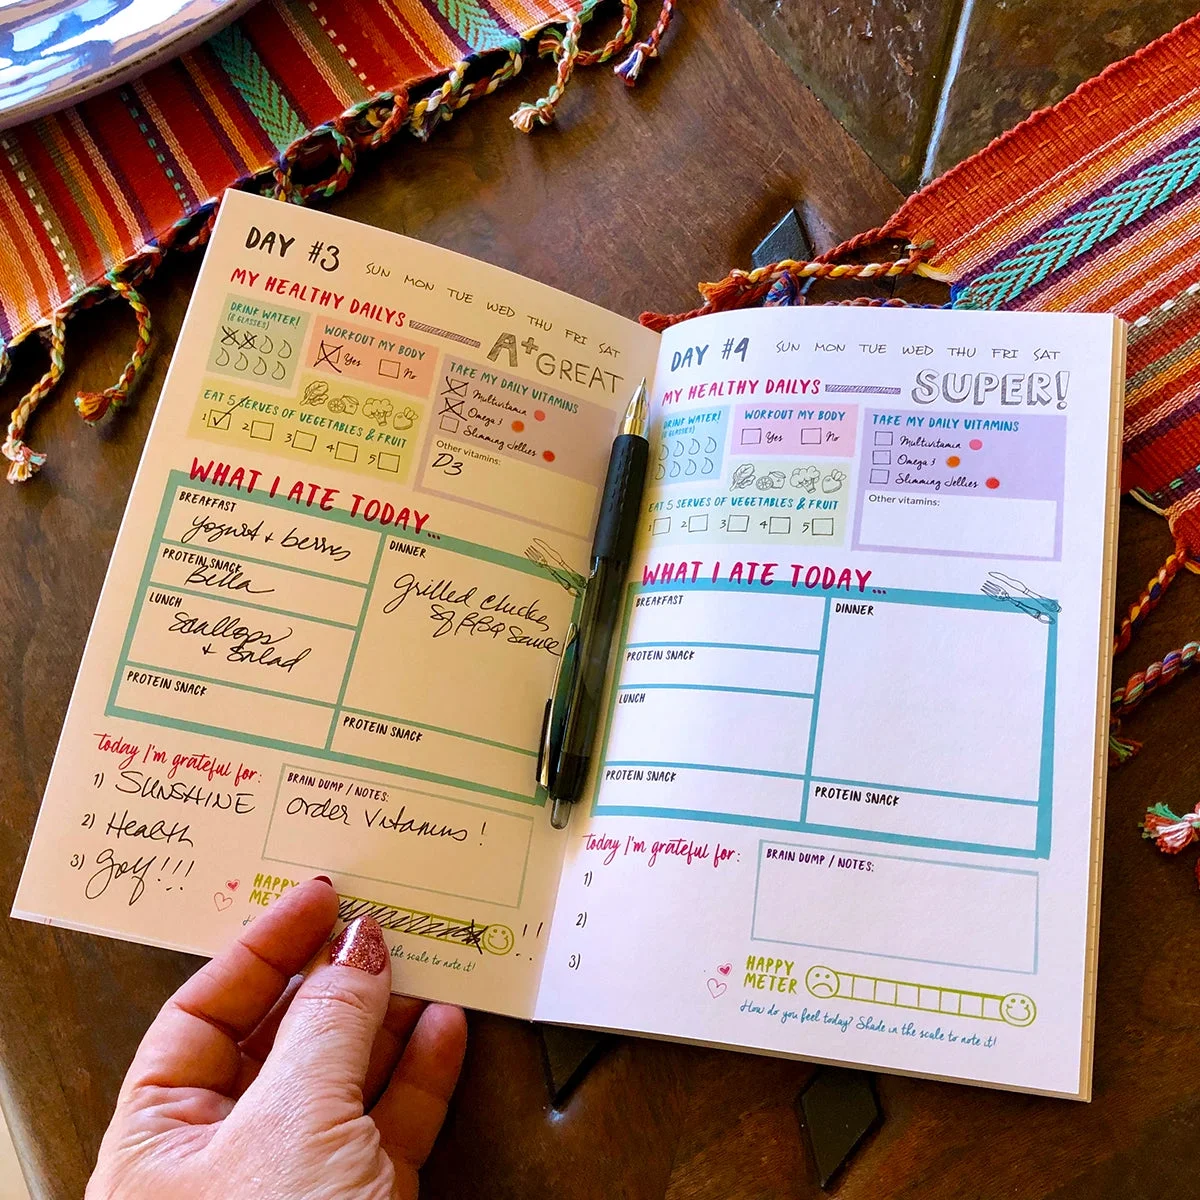 DAY #3
SUN MON TUE WED THU FRI SAT
MY HEALTHY DAILYS
A+ GREAT
DRINK WATER!
(8 GLASSES)
WORKOUT MY BODY
Yes No
TAKE MY DAILY VITAMINS
Multivitamin
Omega 3
Slimming Jellies
Other vitamins:
D3
EAT 5 SERVES OF VEGETABLES & FRUIT
1 2 3 4 5
WHAT I ATE TODAY...
BREAKFAST
Yogurt + berries
PROTEIN SNACK
Bella
LUNCH
Scallops
+ Salad
PROTEIN SNACK
DINNER
Grilled chicken
BBQ Sauce
PROTEIN SNACK
today I'm grateful for:
1) SUNSHINE
2) Health
3) golf!!!
BRAIN DUMP / NOTES:
order vitamins!
HAPPY
!!
the scale to note it!
DAY #4
SUN MON TUE WED THU FRI SAT
MY HEALTHY DAILYS
SUPER!
DRINK WATER!
(8 GLASSES)
WORKOUT MY BODY
Yes No
TAKE MY DAILY VITAMINS
Multivitamin
Omega 3
Slimming Jellies
Other vitamins:
EAT 5 SERVES OF VEGETABLES & FRUIT
1 2 3 4 5
WHAT I ATE TODAY...
BREAKFAST
PROTEIN SNACK
LUNCH
PROTEIN SNACK
DINNER
PROTEIN SNACK
today I'm grateful for:
1)
2)
3)
BRAIN DUMP / NOTES:
HAPPY
METER
How do you feel today? Shade in the scale to note it!